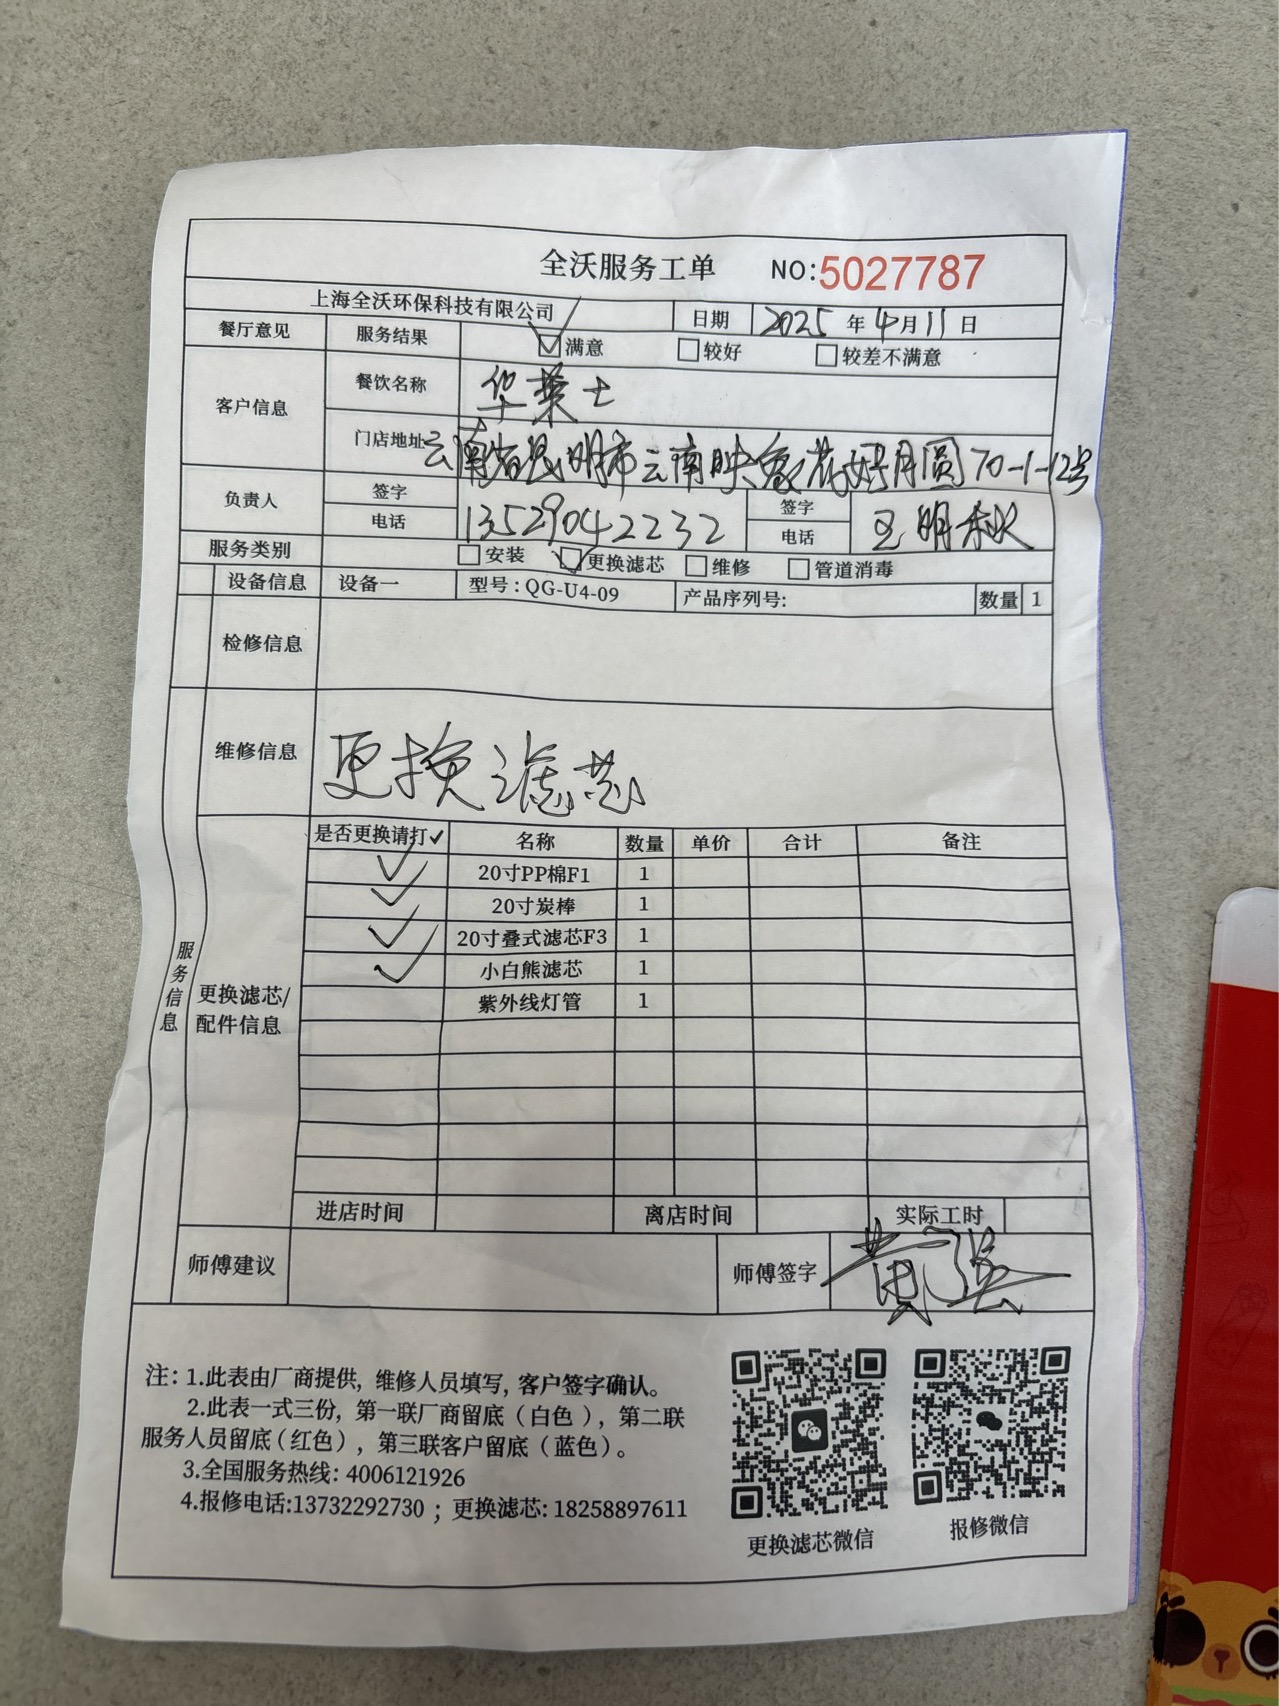 全沃服务工单 NO:5027787
上海全沃环保科技有限公司 日期 2025 年 4 月 11 日
餐厅意见 服务结果 满意 较好 较差不满意
客户信息 餐饮名称 华莱士
门店地址 云南省昆明市云南映象花好月圆70-1-12号
负责人 签字 签字
电话 13529042232 电话 王明秋
服务类别 安装 更换滤芯 维修 管道消毒
设备信息 设备一 型号：QG-U4-09 产品序列号: 数量 1
检修信息
维修信息 更换滤芯
服务信息
更换滤芯/
配件信息
是否更换请打✓ 名称 数量 单价 合计 备注
✓ 20寸PP棉F1 1
✓ 20寸炭棒 1
✓ 20寸叠式滤芯F3 1
✓ 小白熊滤芯 1
紫外线灯管 1
进店时间 离店时间 实际工时
师傅建议 师傅签字 黄强
注：1.此表由厂商提供，维修人员填写，客户签字确认。
2.此表一式三份，第一联厂商留底（白色），第二联
服务人员留底（红色），第三联客户留底（蓝色）。
3.全国服务热线：4006121926
4.报修电话:13732292730；更换滤芯: 18258897611
更换滤芯微信 报修微信